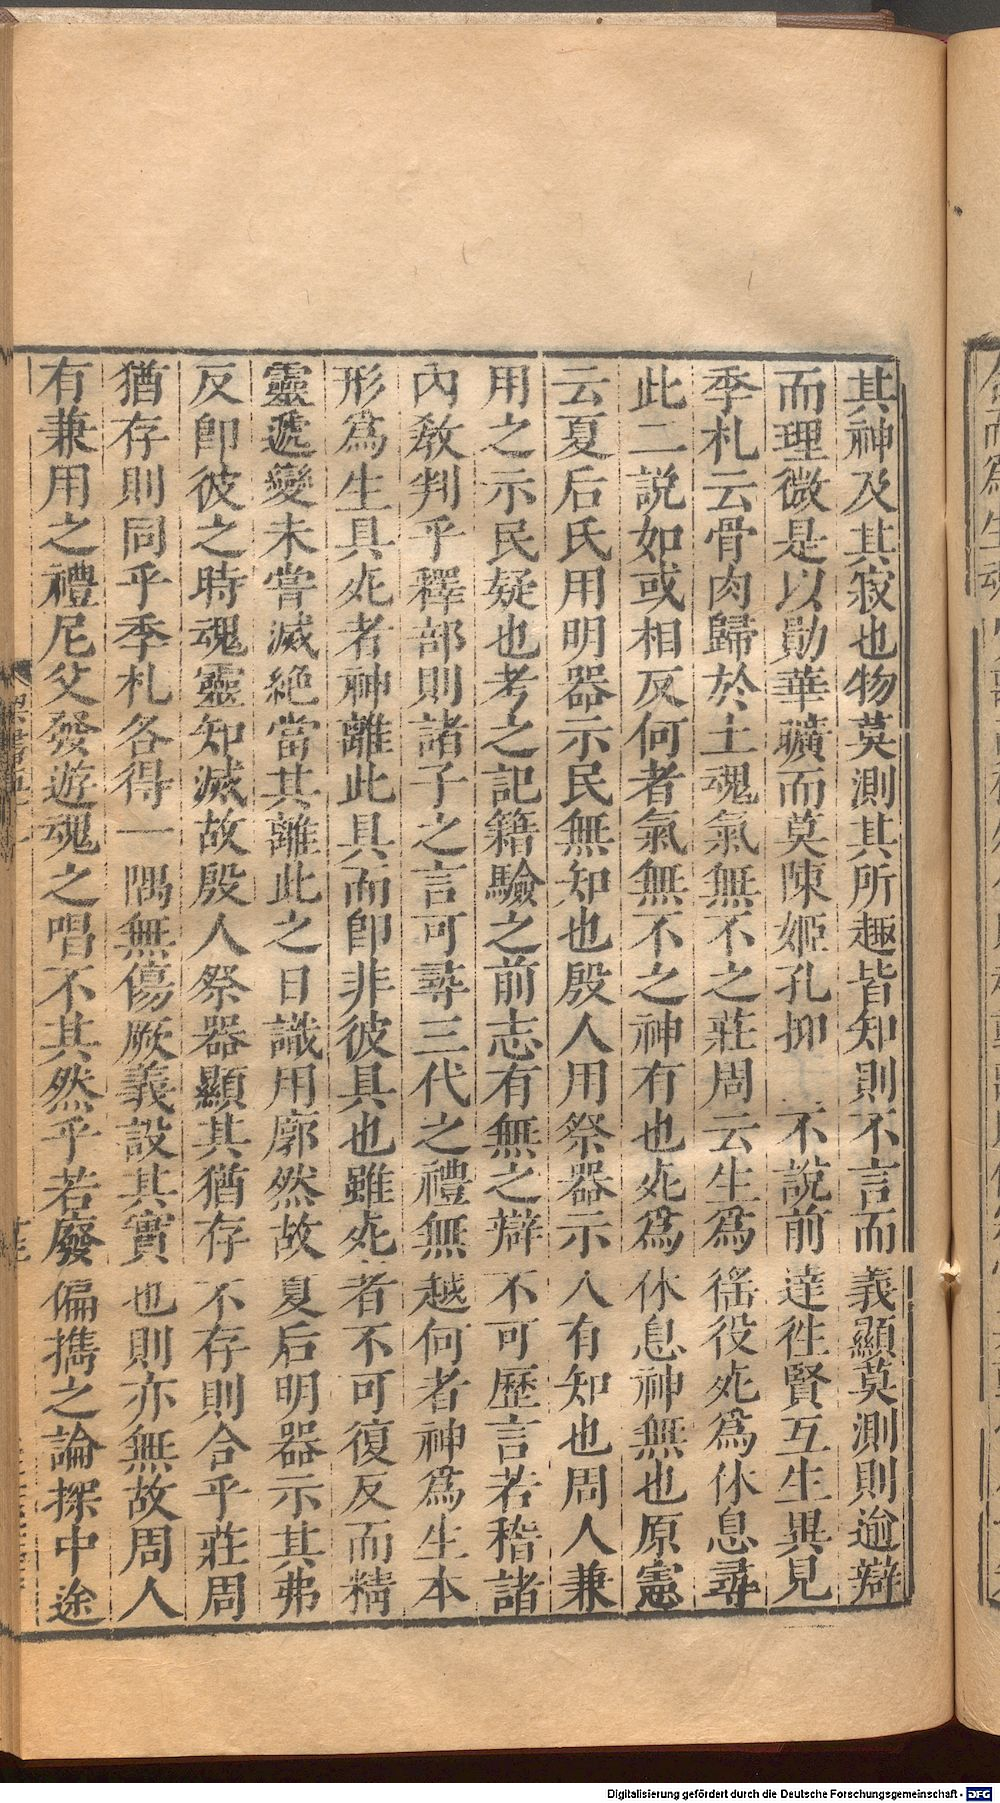 其神及其寂也物莫測其所趣皆知則不言而義顯莫測則逾辯
而理微是以勛華曠而莫陳姬孔抑不說前達徃賢互生異見
季札云骨肉歸於土魂氣無不之莊周云生爲徭役死爲休息尋
此二說如或相反何者氣無不之神有也死爲休息神無也原憲
云夏后氏用明器示民無知也殷人用祭器示人有知也周人兼
用之示民疑也考之記籍驗之前志有無之辯不可歷言若稽諸
內敎判乎釋部則諸子之言可尋三代之禮無越何者神爲生本
形爲生具死者神離此具而卽非彼具也雖死者不可復反而精
靈遞變未嘗滅絶當其離此之日識用廓然故夏后明器示其弗
反卽彼之時魂靈知滅故殷人祭器顯其猶存不存則合乎莊周
猶存則同乎季札各得一隅無傷厥義設其實也則亦無故周人
有兼用之禮尼父發遊魂之唱不其然乎若廢偏擕之論探中途
Digitalisierung gefördert durch die Deutsche Forschungsgemeinschaft - DFG